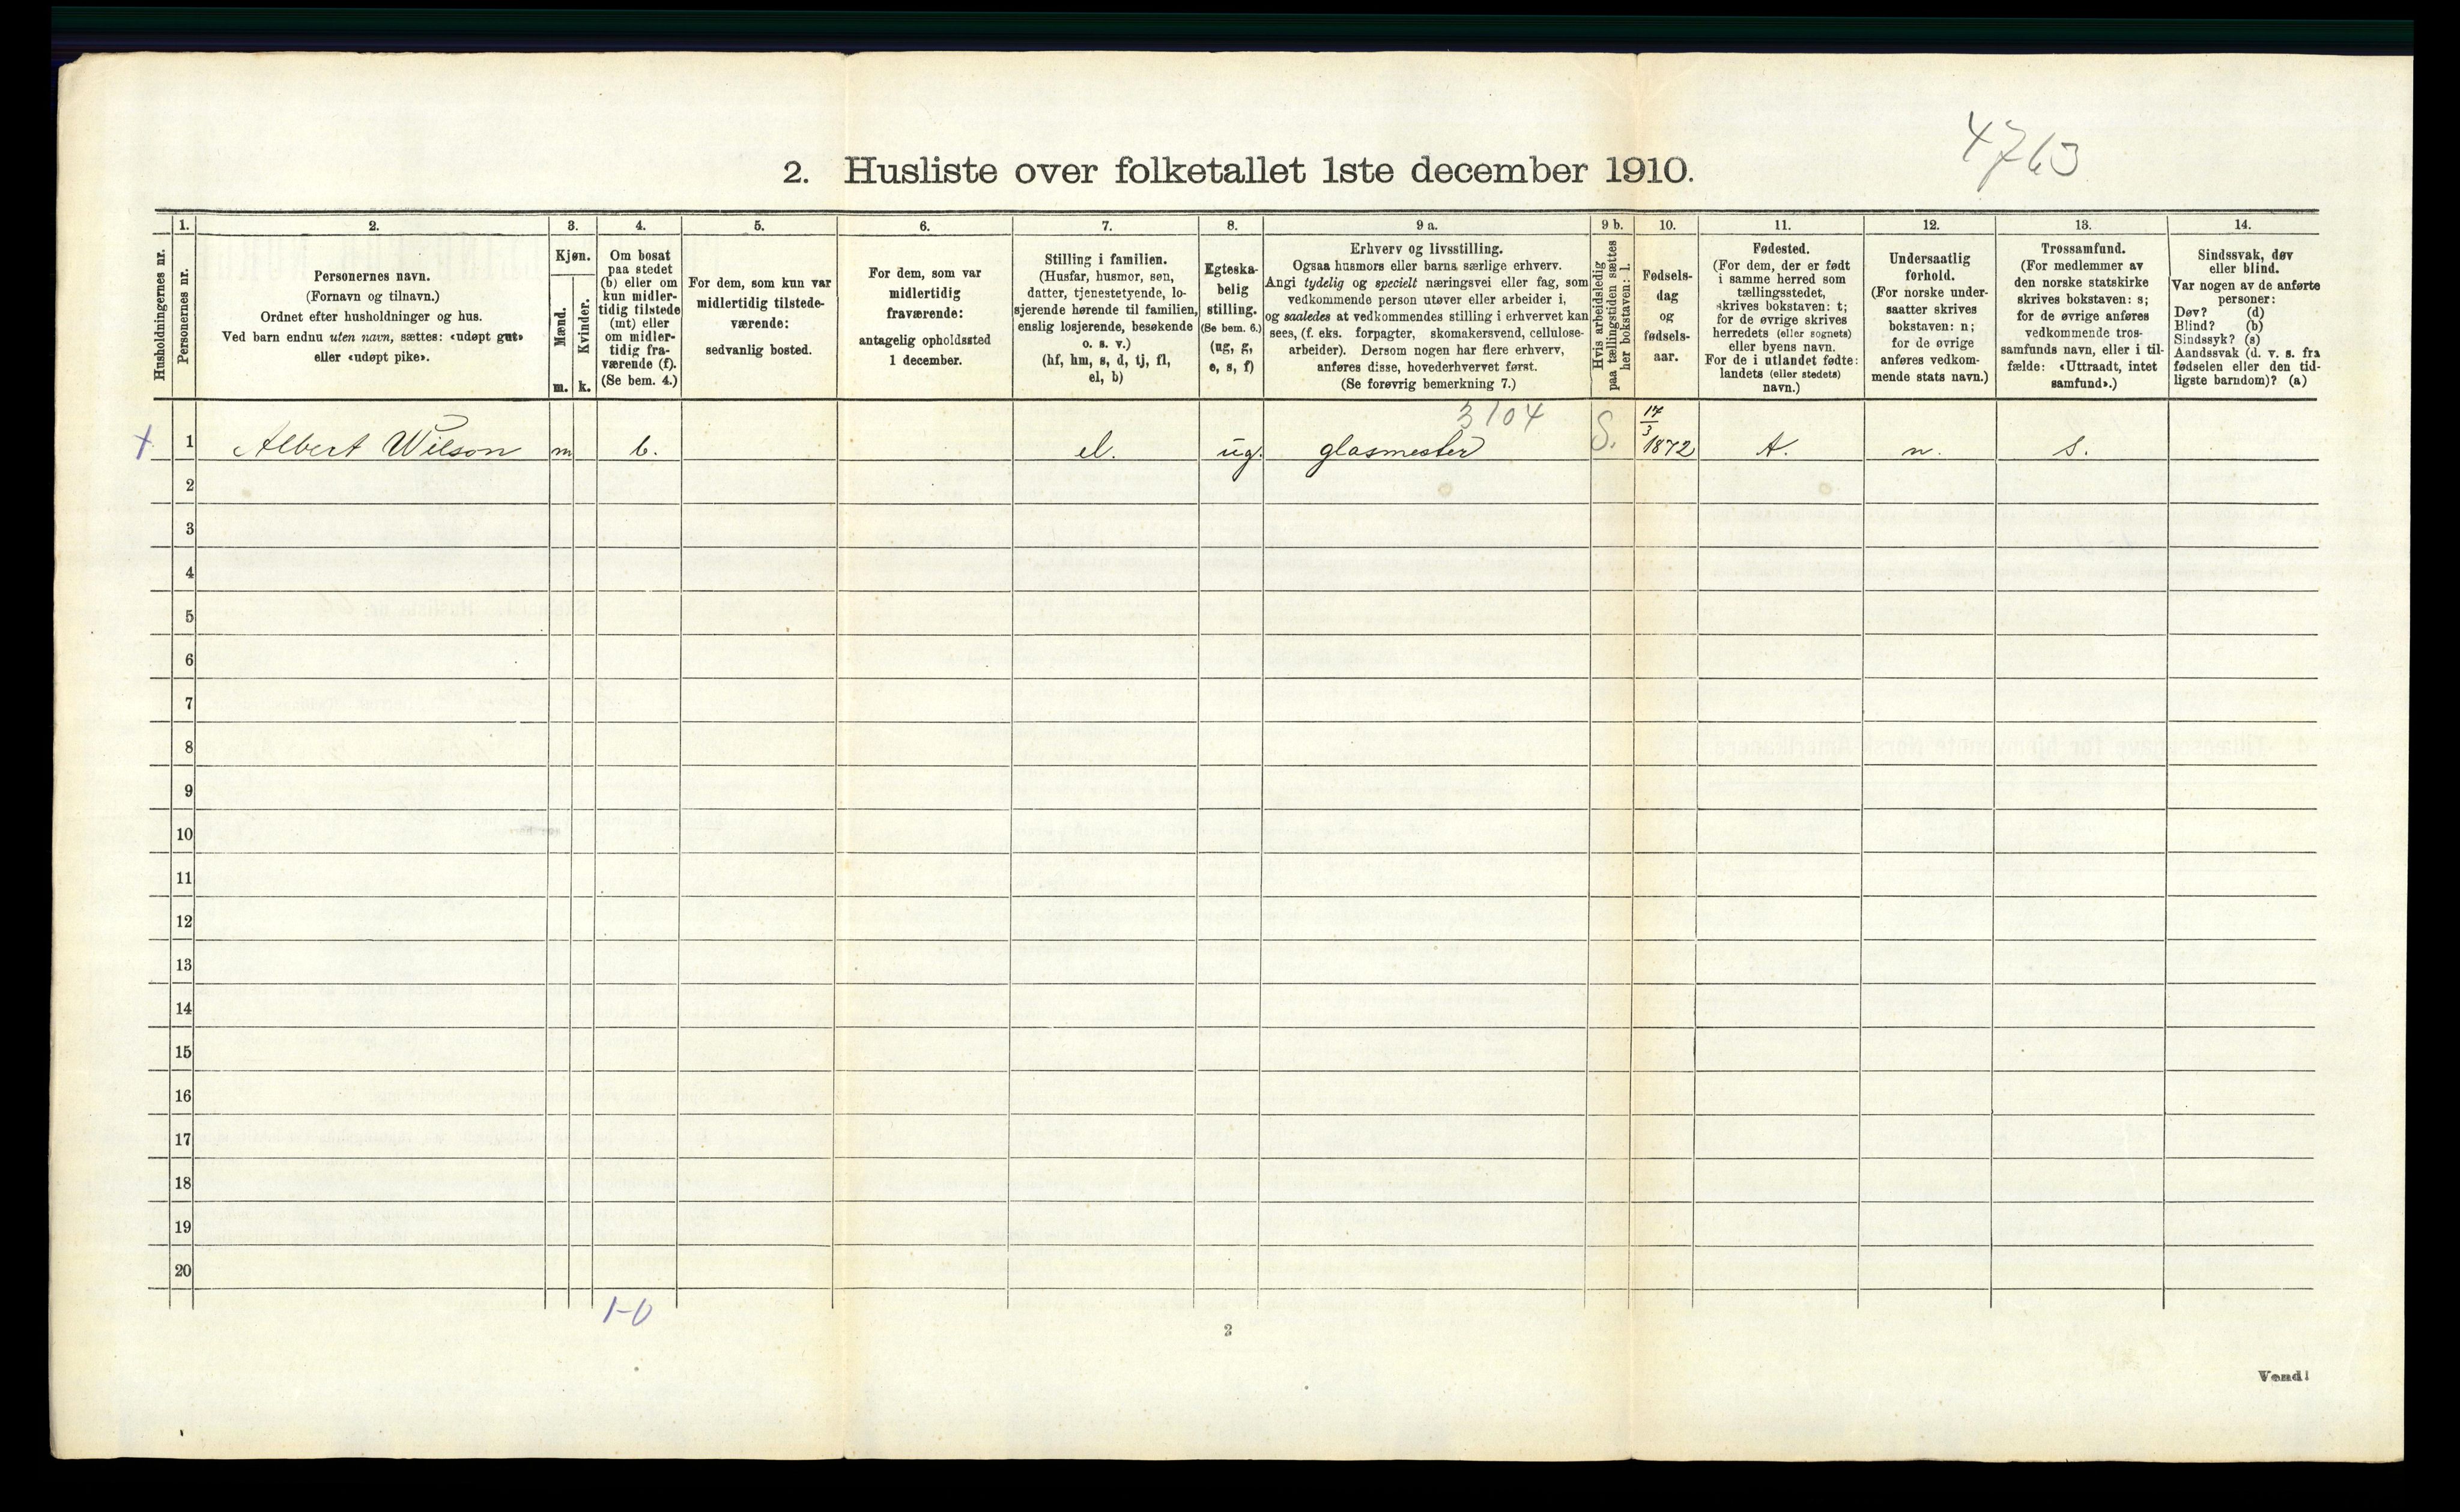 4763
2. Husliste over folketallet 1ste december 1910.
Husholdningernes nr.
1.
Personernes nr.
2.
Personernes navn.
(Fornavn og tilnavn.)
Ordnet efter husholdninger og hus.
Ved barn endnu uten navn, sættes: «udøpt gut»
eller «udøpt pike».
3.
Kjøn.
Mænd.
Kvinder.
m.
k.
4.
Om bosat
paa stedet
(b) eller om
kun midler-
tidig tilstede
(mt) eller
om midler-
tidig fra-
værende (f).
(Se bem. 4.)
5.
For dem, som kun var
midlertidig tilstede-
værende:
sedvanlig bosted.
6.
For dem, som var
midlertidig
fraværende:
antagelig opholdssted
1 december.
7.
Stilling i familien.
(Husfar, husmor, søn,
datter, tjenestetyende, lo-
sjerende hørende til familien,
enslig losjerende, besøkende
o. s. v.)
(hf, hm, s, d, tj, fl,
el, b)
8.
Egteska-
belig
stilling.
(Se bem. 6.)
(ug, g,
e, s, f)
9 a.
Erhverv og livsstilling.
Ogsaa husmors eller barns særlige erhverv.
Angi tydelig og specielt næringsvei eller fag, som
vedkommende person utøver eller arbeider i,
og saaledes at vedkommendes stilling i erhvervet kan
sees, (f. eks. forpagter, skomakersvend, cellulose-
arbeider). Dersom nogen har flere erhverv,
anføres disse, hovederhvervet først.
(Se forøvrig bemerkning 7.)
9 b.
Hvis arbeidsledig
paa tællingstiden sættes
her bokstaven: l.
10.
Fødsels-
dag
og
fødsels-
aar.
11.
Fødested.
(For dem, der er født
i samme herred som
tællingsstedet,
skrives bokstaven: t;
for de øvrige skrives
herredets (eller sognets)
eller byens navn.
For de i utlandet fødte:
landets (eller stedets)
navn.)
12.
Undersaatlig
forhold.
(For norske under-
saatter skrives
bokstaven: n;
for de øvrige
anføres vedkom-
mende stats navn.)
13.
Trossamfund.
(For medlemmer av
den norske statskirke
skrives bokstaven: s;
for de øvrige anføres
vedkommende tros-
samfunds navn, eller i til-
fælde: «Uttraadt, intet
samfund».)
14.
Sindssvak, døv
eller blind.
Var nogen av de anførte
personer:
Døv? (d)
Blind? (b)
Sindssyk? (s)
Aandssvak (d. v. s. fra
fødselen eller den tid-
ligste barndom)? (a)
3104
17/3
+ 1 Albert Wilson m b. el. ug. glasmester S. 1872 t. n. s.
2
3
4
5
6
7
8
9
10
11
12
13
14
15
16
17
18
19
20
1-0
2
Vend!